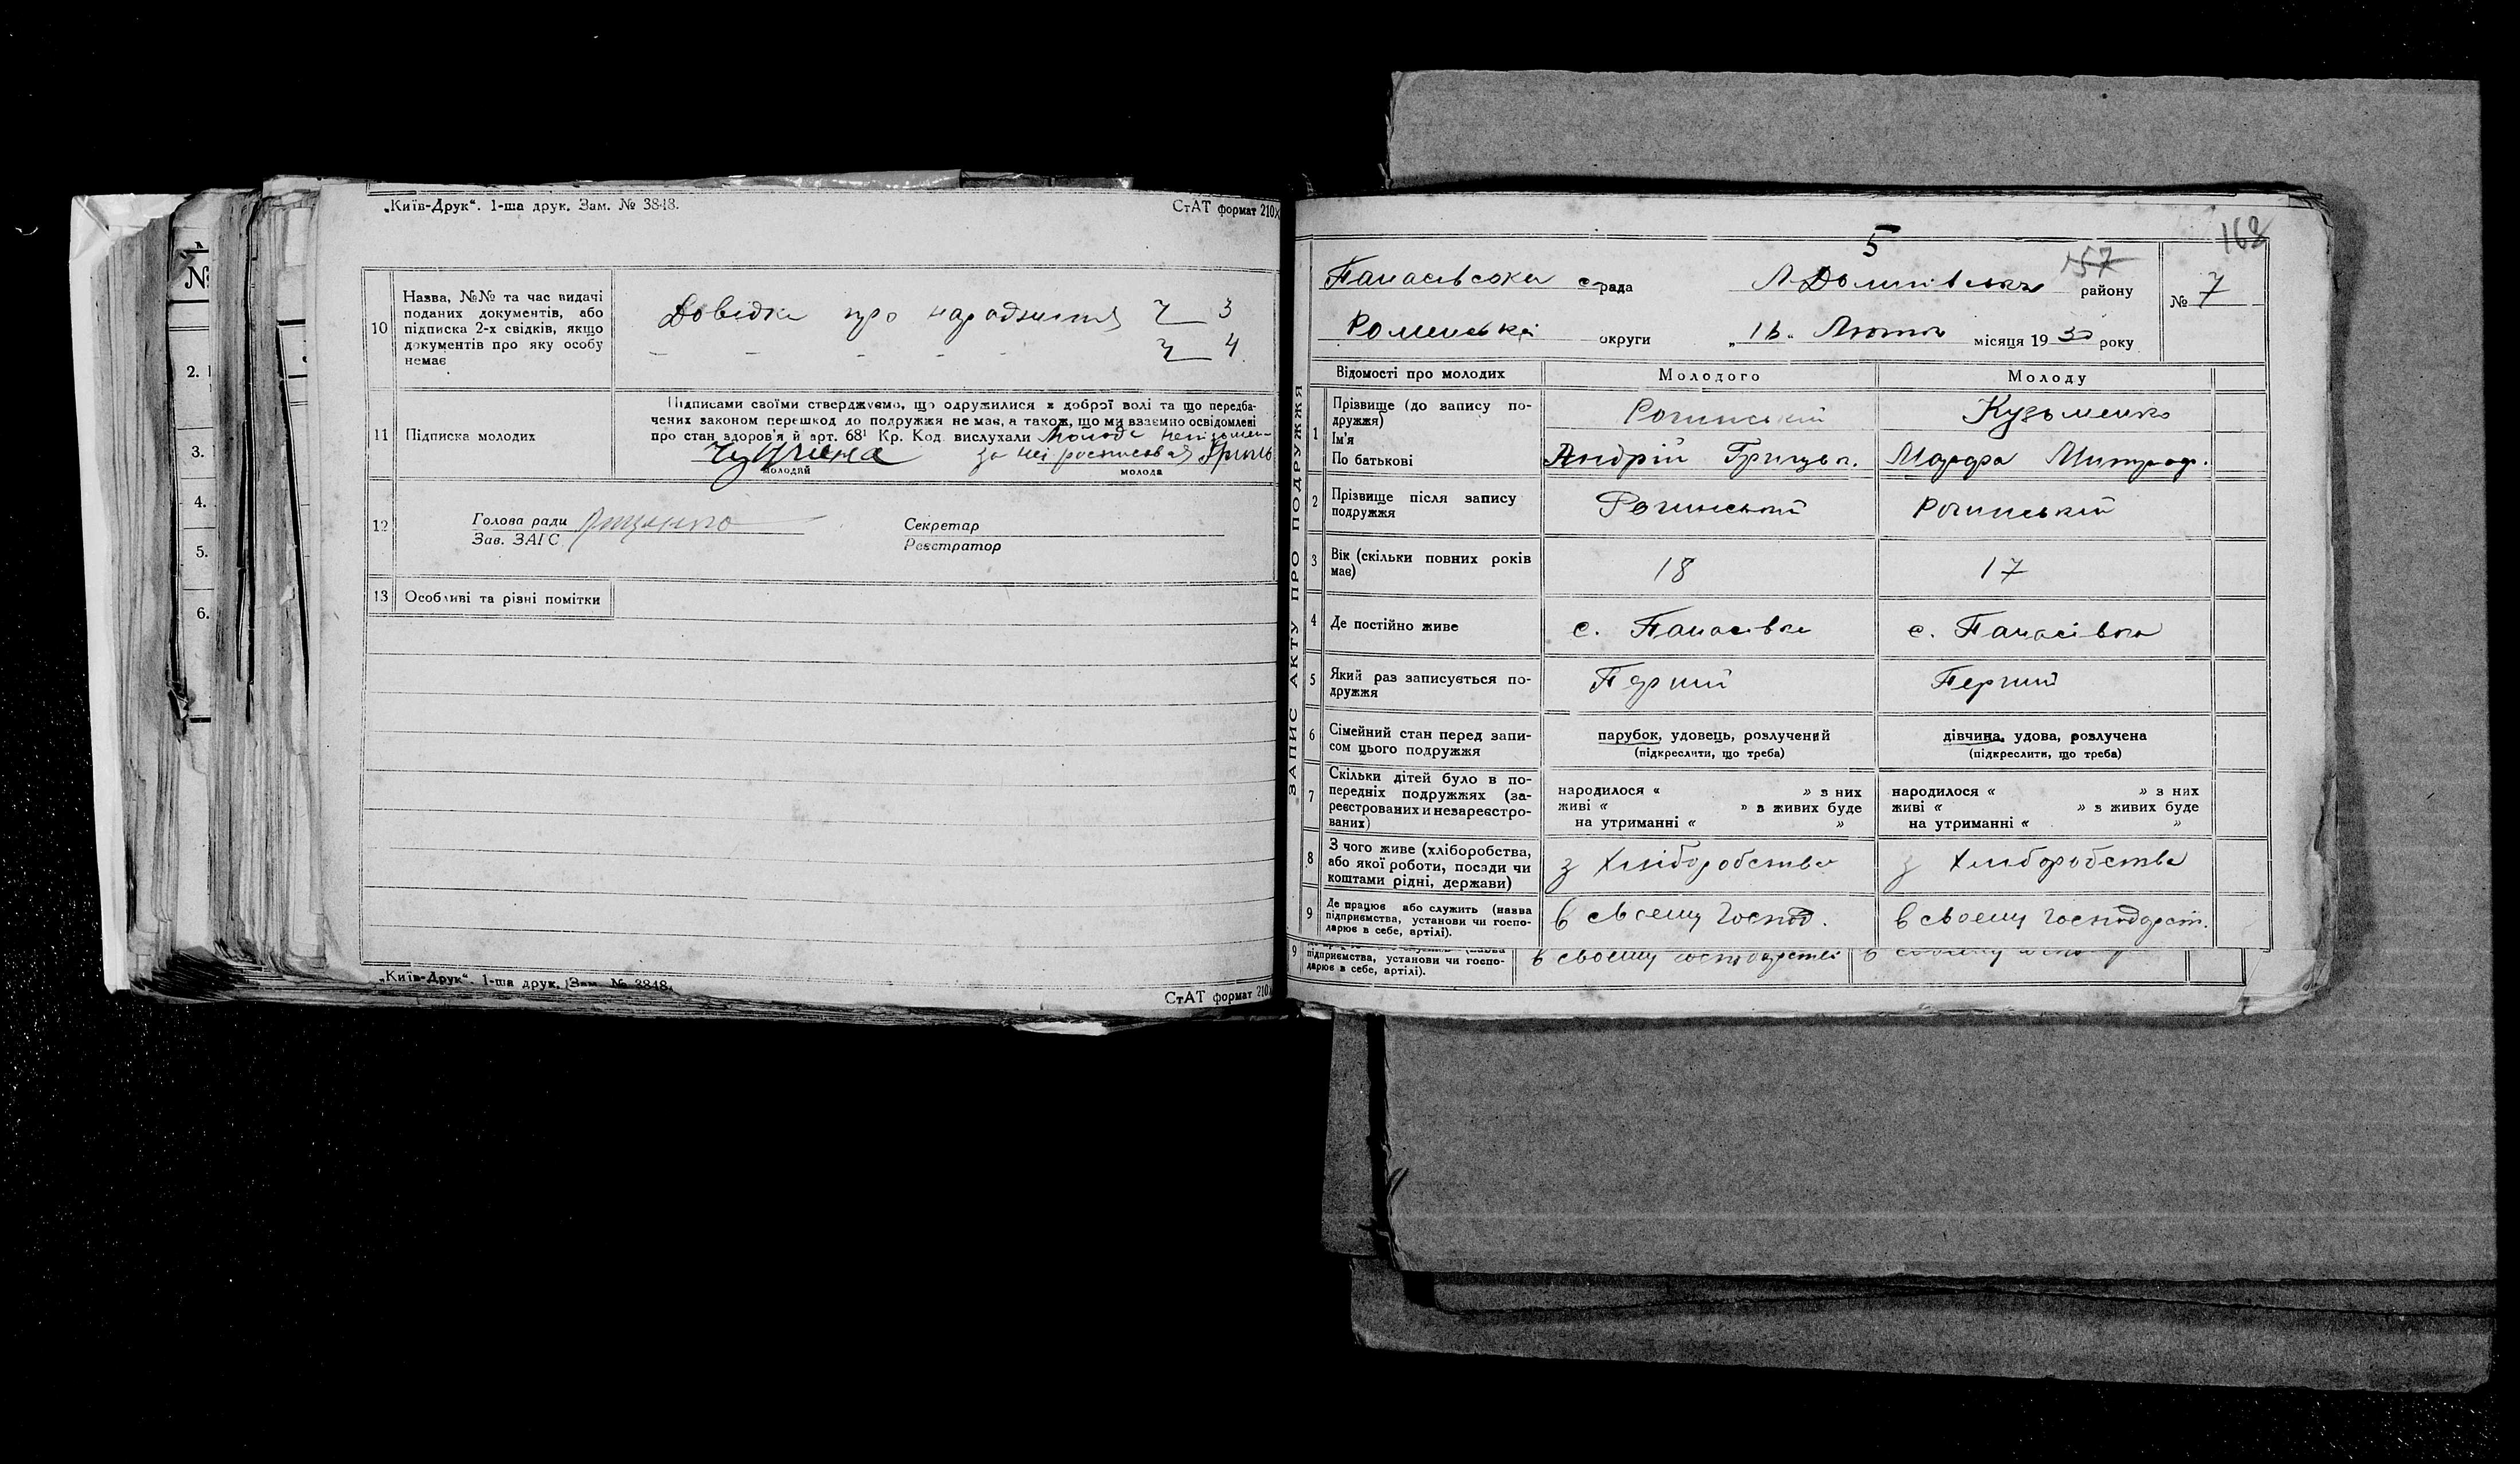 „Київ-Друк“. 1-ша друк. Зам. № 3848.
СтАТ формат 210
10
Назва, №№ та час видачі
поданих документів, або
підписка 2-х свідків, якщо
документів про яку особу
немає
Довідка про народження Ч 3
– – – – – Ч 4
11
Підписка молодих
Підписами своїми стверджуємо, що одружилися з доброї волі та що передба-
чених законом перешкод до подружжя не має, а також, що ми взаємно освідомлені
про стан здоров'я й арт. 68¹ Кр. Код. вислухали Молода неписьмен-
за неї росписовая
молодий
молода
12
Голова ради
Зав. ЗАГС
Секретар
Реєстратор
13
Особливі та різні помітки
„Київ-Друк“. 1-ша друк. Зам. № 3848.
СтАТ формат 210
№
2.
3.
4.
5.
6.
5
168
157
Панасівська с рада
району
№ 7
Роменської округи
„ 16 „ Лютого місяця 1930 року
ЗАПИС АКТУ ПРО ПОДРУЖЖЯ
Відомості про молодих
Молодого
Молоду
1
Прізвище (до запису по-
дружжя)
Ім'я
По батькові
Рогинський
Андрій Грицьк.
Кузьменко
Марфа Митроф.
2
Прізвище після запису
подружжя
Рогинський
Рогинській
3
Вік (скільки повних років
має)
18
17
4
Де постійно живе
с. Панасівка
с. Панасівка
5
Який раз записується по-
дружжя
Перший
Перший
6
Сімейний стан перед запи-
сом цього подружжя
парубок, удовець, розлучений
(підкреслити, що треба)
дівчина, удова, розлучена
(підкреслити, що треба)
7
Скільки дітей було в по-
передніх подружжях (за-
реєстрованих и незареєстро-
ваних)
народилося « » з них
живі « » з живих буде
на утриманні « »
народилося « » з них
живі « » з живих буде
на утриманні « »
8
З чого живе (хліборобства,
або якої роботи, посади чи
коштами рідні, держави)
з хліборобства
з хліборобства
9
Де працює або служить (назва
підприємства, установи чи госпо-
дарює в себе, артілі).
в своєму господ.
в своєму господарст.
9
підприємства, установи чи госпо-
дарює в себе, артілі).
в своєму господарстві